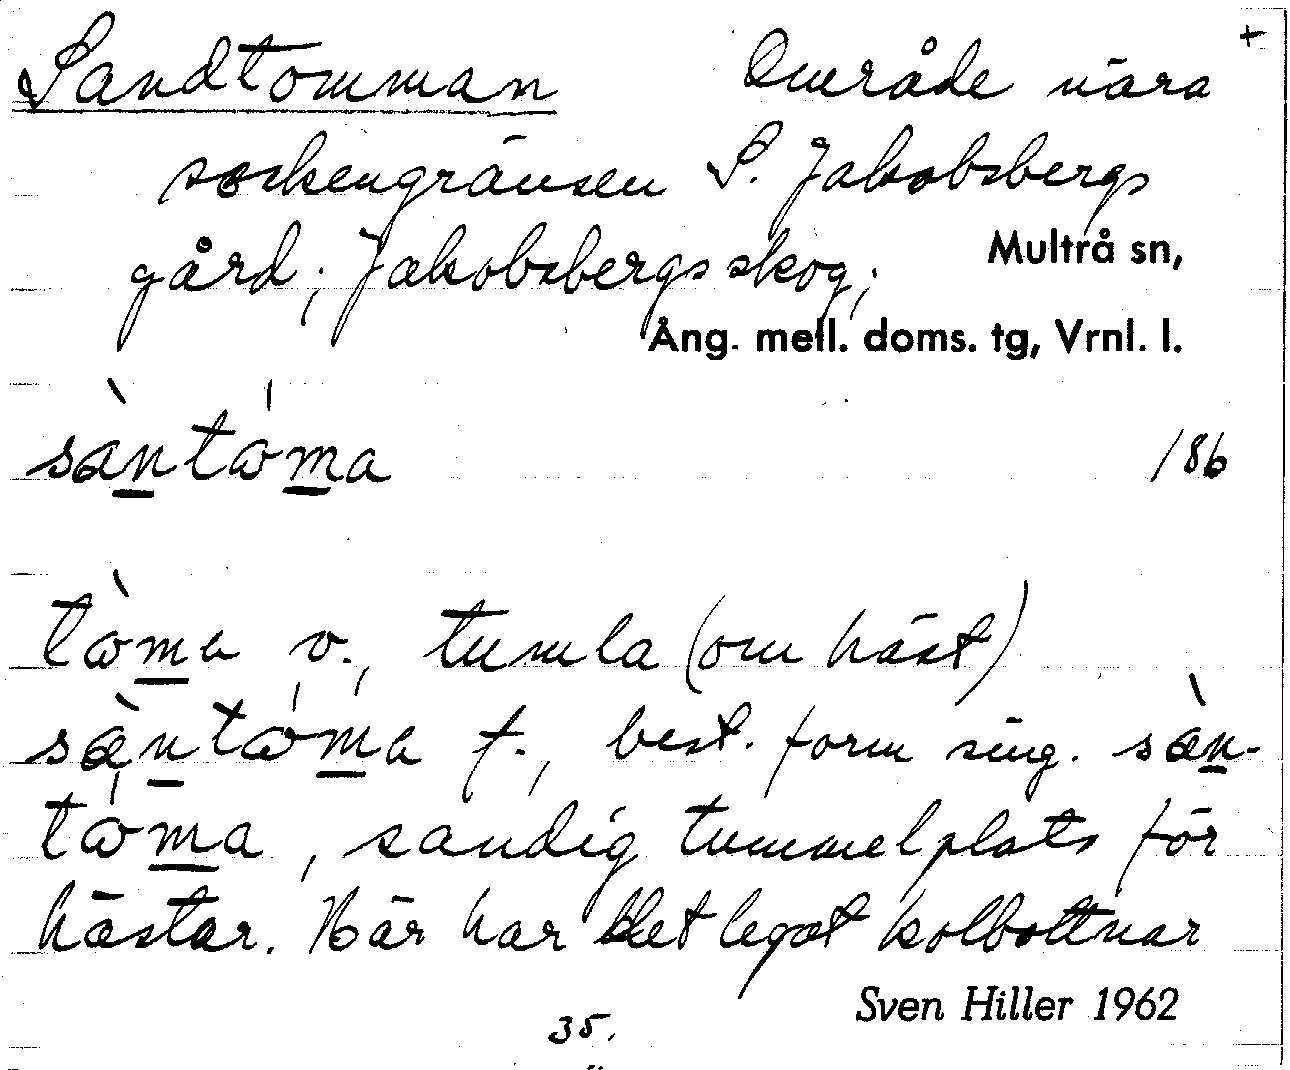 Sandtomman Område nära +
sockengränsen S. Jakobsbergs
gård; Jakobsbergsskog;
Multrå sn,
Ång. mell. doms. tg, Vrnl. l.
sàntɷ́ma /86
tɷ̀ma v., tumla (om häst)
sæ̀ntɷ́ma f., best. form sing. sæ̀n-
tɷ́ma, sandig tummelplats för
hästar. Här har det legat kolbottnar
Sven Hiller 1962
35.